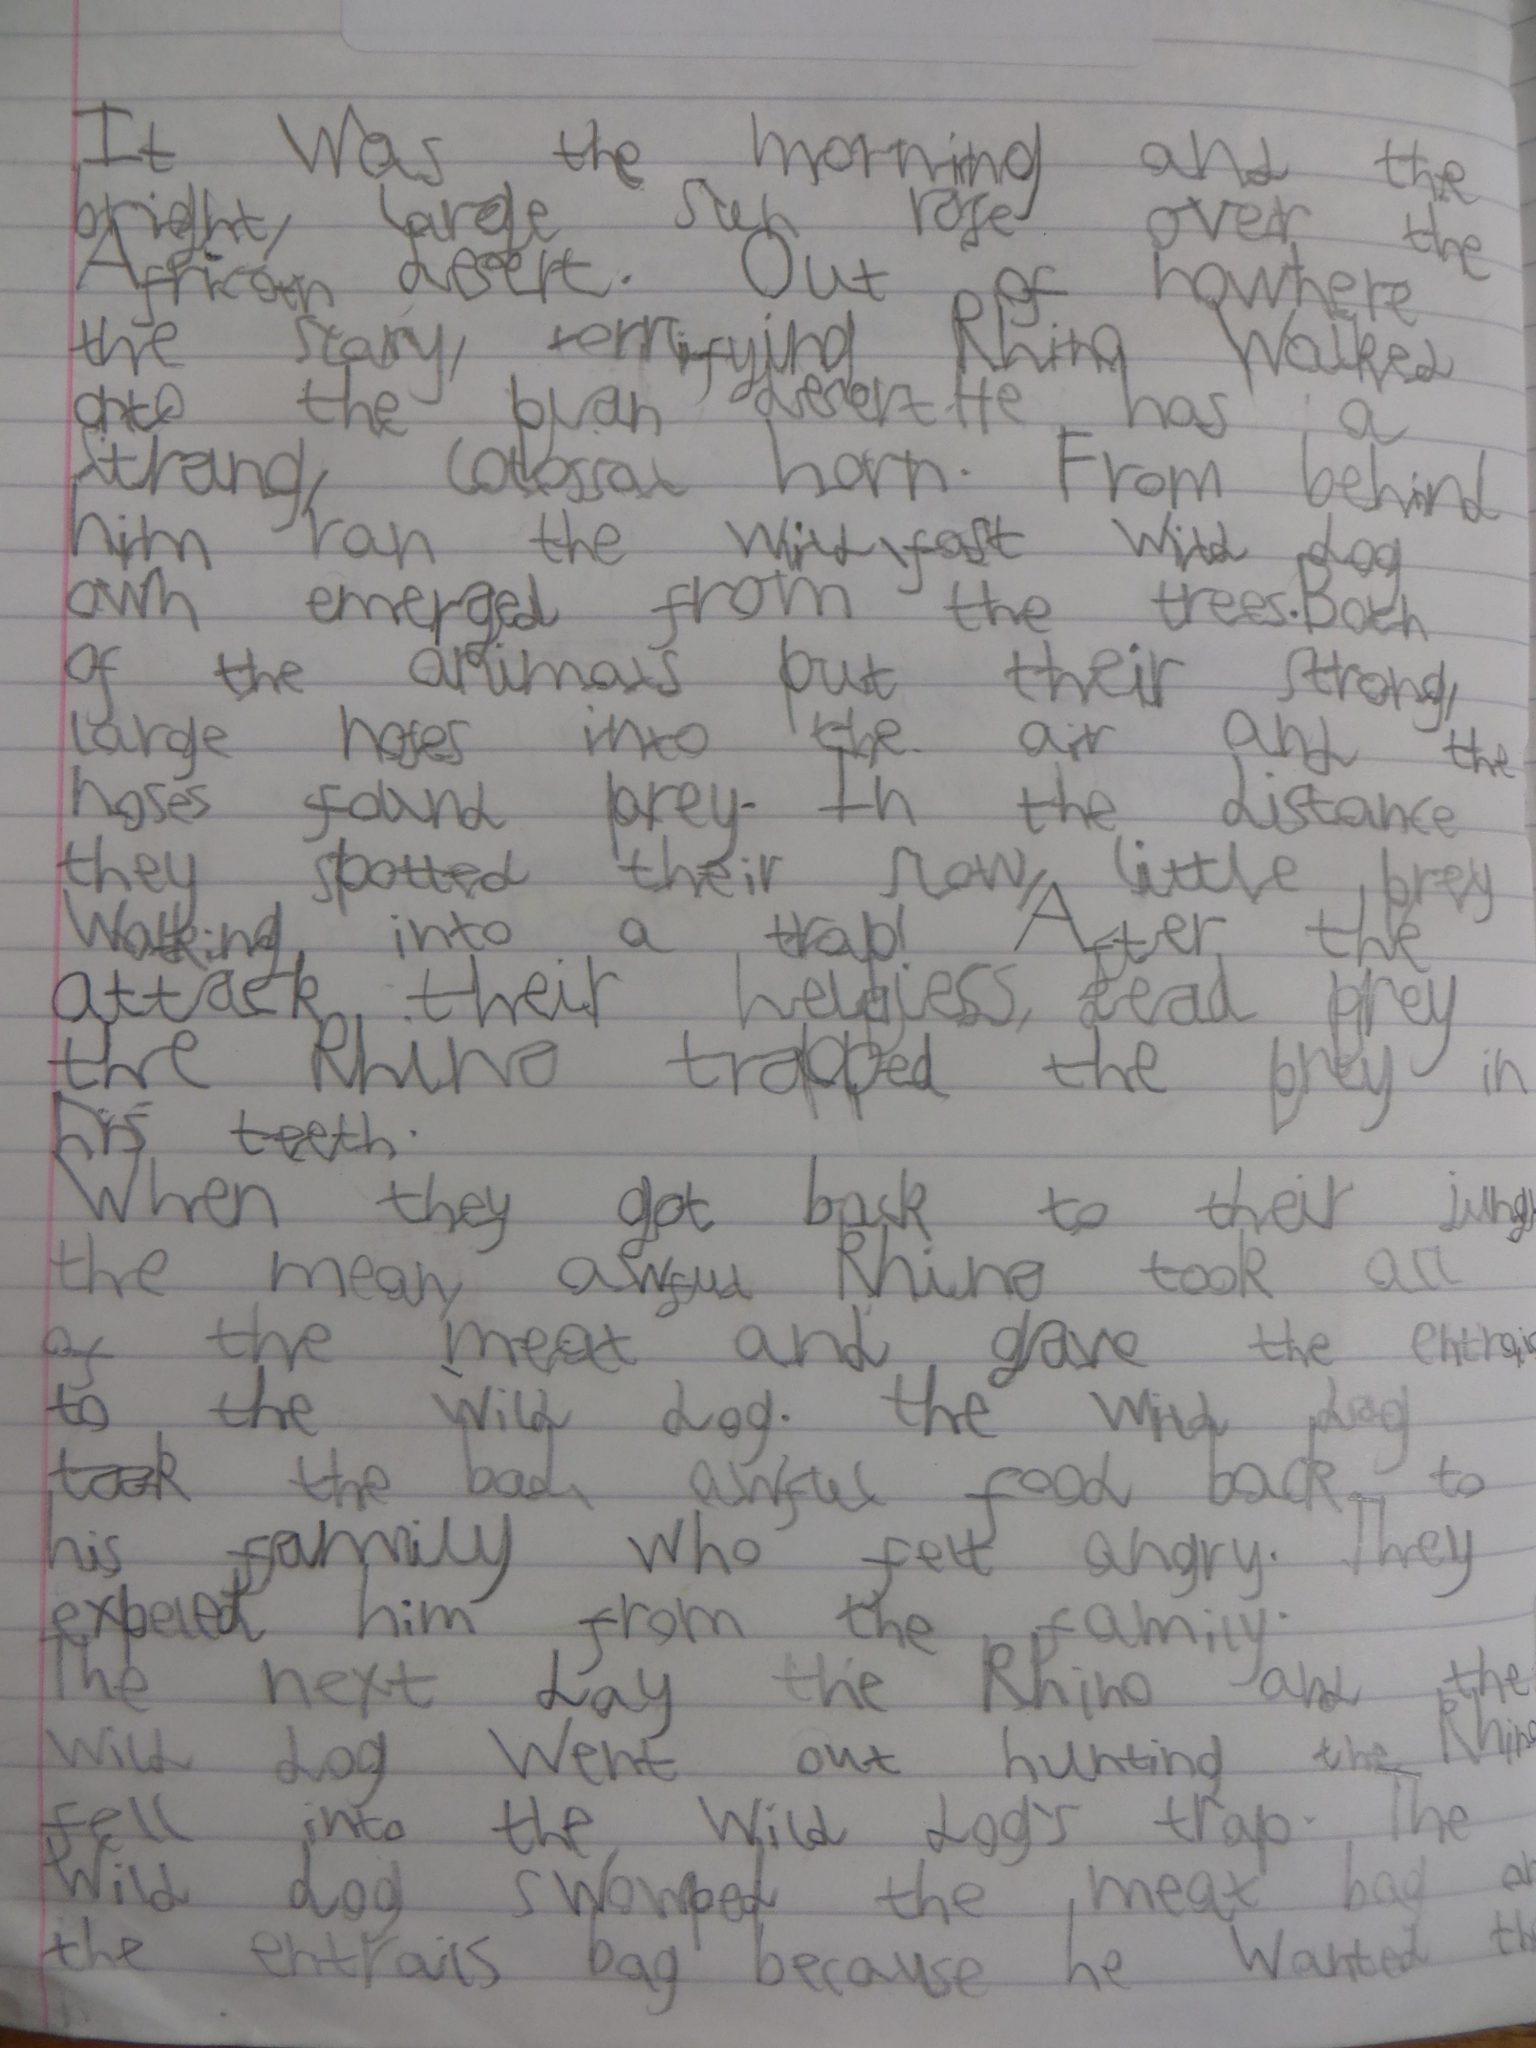 It Was the morning and the
bright, large sun rose over the
African desert. Out of nowhere
the scary, terrifying Rhino Walked
onto the plan desert He has a
strong, colossal horn. From behind
him ran the wild, fast wild dog
own emerged from the trees. Both
of the animals put their strong,
large noses into the air and the
noses found prey. In the distance
they spotted their slow, little prey
Walking into a trap! After the
attack their helpless, dead prey
the Rhino trapped the prey in
his teeth.
When they got back to their
the mean, awful Rhino took all
of the meat and gave the
to the wild dog. the wild dog
took the bad, awful food back to
his family who felt angry. They
expelled him from the family.
The next day the Rhino and the
wild dog Went out hunting the Rhino
fell into the Wild dog's trap. The
Wild dog swomped the meat bag
the entrails bag because he Wanted